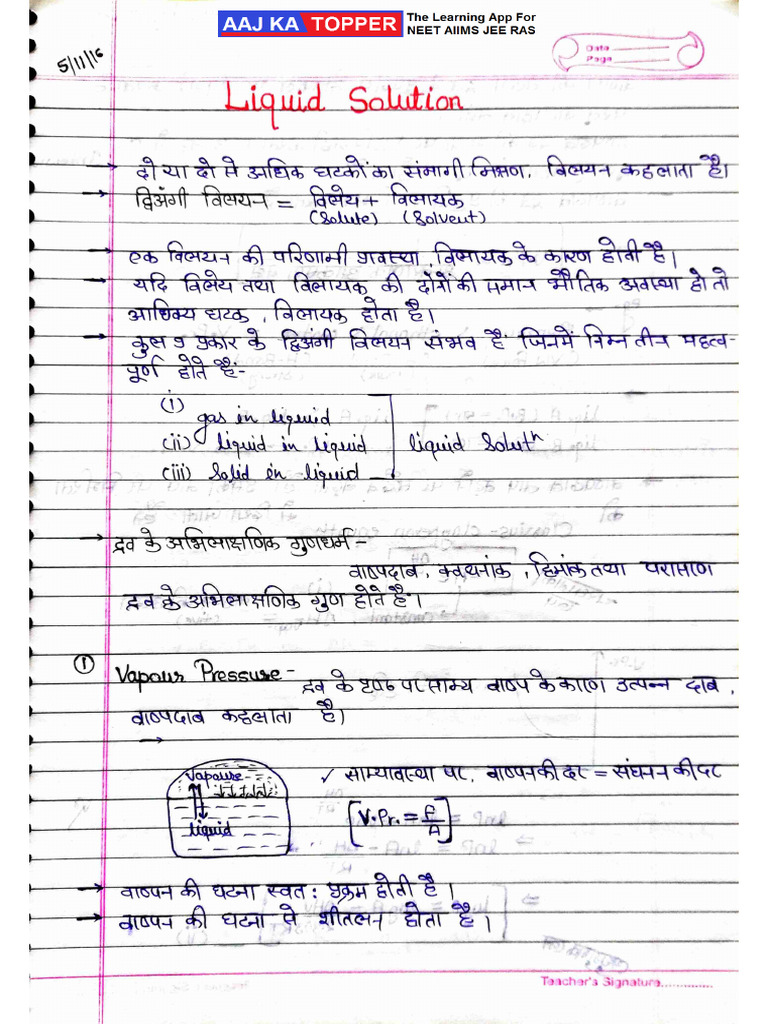 AAJ KA TOPPER The Learning App For
NEET AIIMS JEE RAS
Date
Page
5/11/16
Liquid Solution
→ दो या दो से अधिक घटकों का समांगी मिश्रण, विलयन कहलाता है।
→ द्विअंगी विलयन = विलेय + विलायक
(Solute) (Solvent)
→ एक विलयन की परिणामी अवस्था, विलायक के कारण होती है।
→ यदि विलेय तथा विलायक की दोनों की समान भौतिक अवस्था हो तो
आधिक्य घटक, विलायक होता है।
→ कुल 9 प्रकार के द्विअंगी विलयन संभव है जिनमें निम्न तीन महत्व-
पूर्ण होते हैं:-
(i) gas in liquid
(ii) liquid in liquid liquid Solutn
(iii) Solid in liquid
→ द्रव के अभिलाक्षणिक गुणधर्म -
वाष्पदाब, क्वथनांक, हिमांक तथा परासरण
द्रव के अभिलाक्षणिक गुण होते है।
① Vapour Pressure - द्रव के पृष्ठ पर साम्य वाष्प के कारण उत्पन्न दाब,
वाष्पदाब कहलाता है।
→
Vapour
✓ साम्यावस्था पर, वाष्पन की दर = संघनन की दर
liquid
[V.Pr. = F/A]
→ वाष्पन की घटना स्वत: प्रक्रम होती है।
→ वाष्पन की घटना से शीतलन होता है।
Teacher's Signature..............